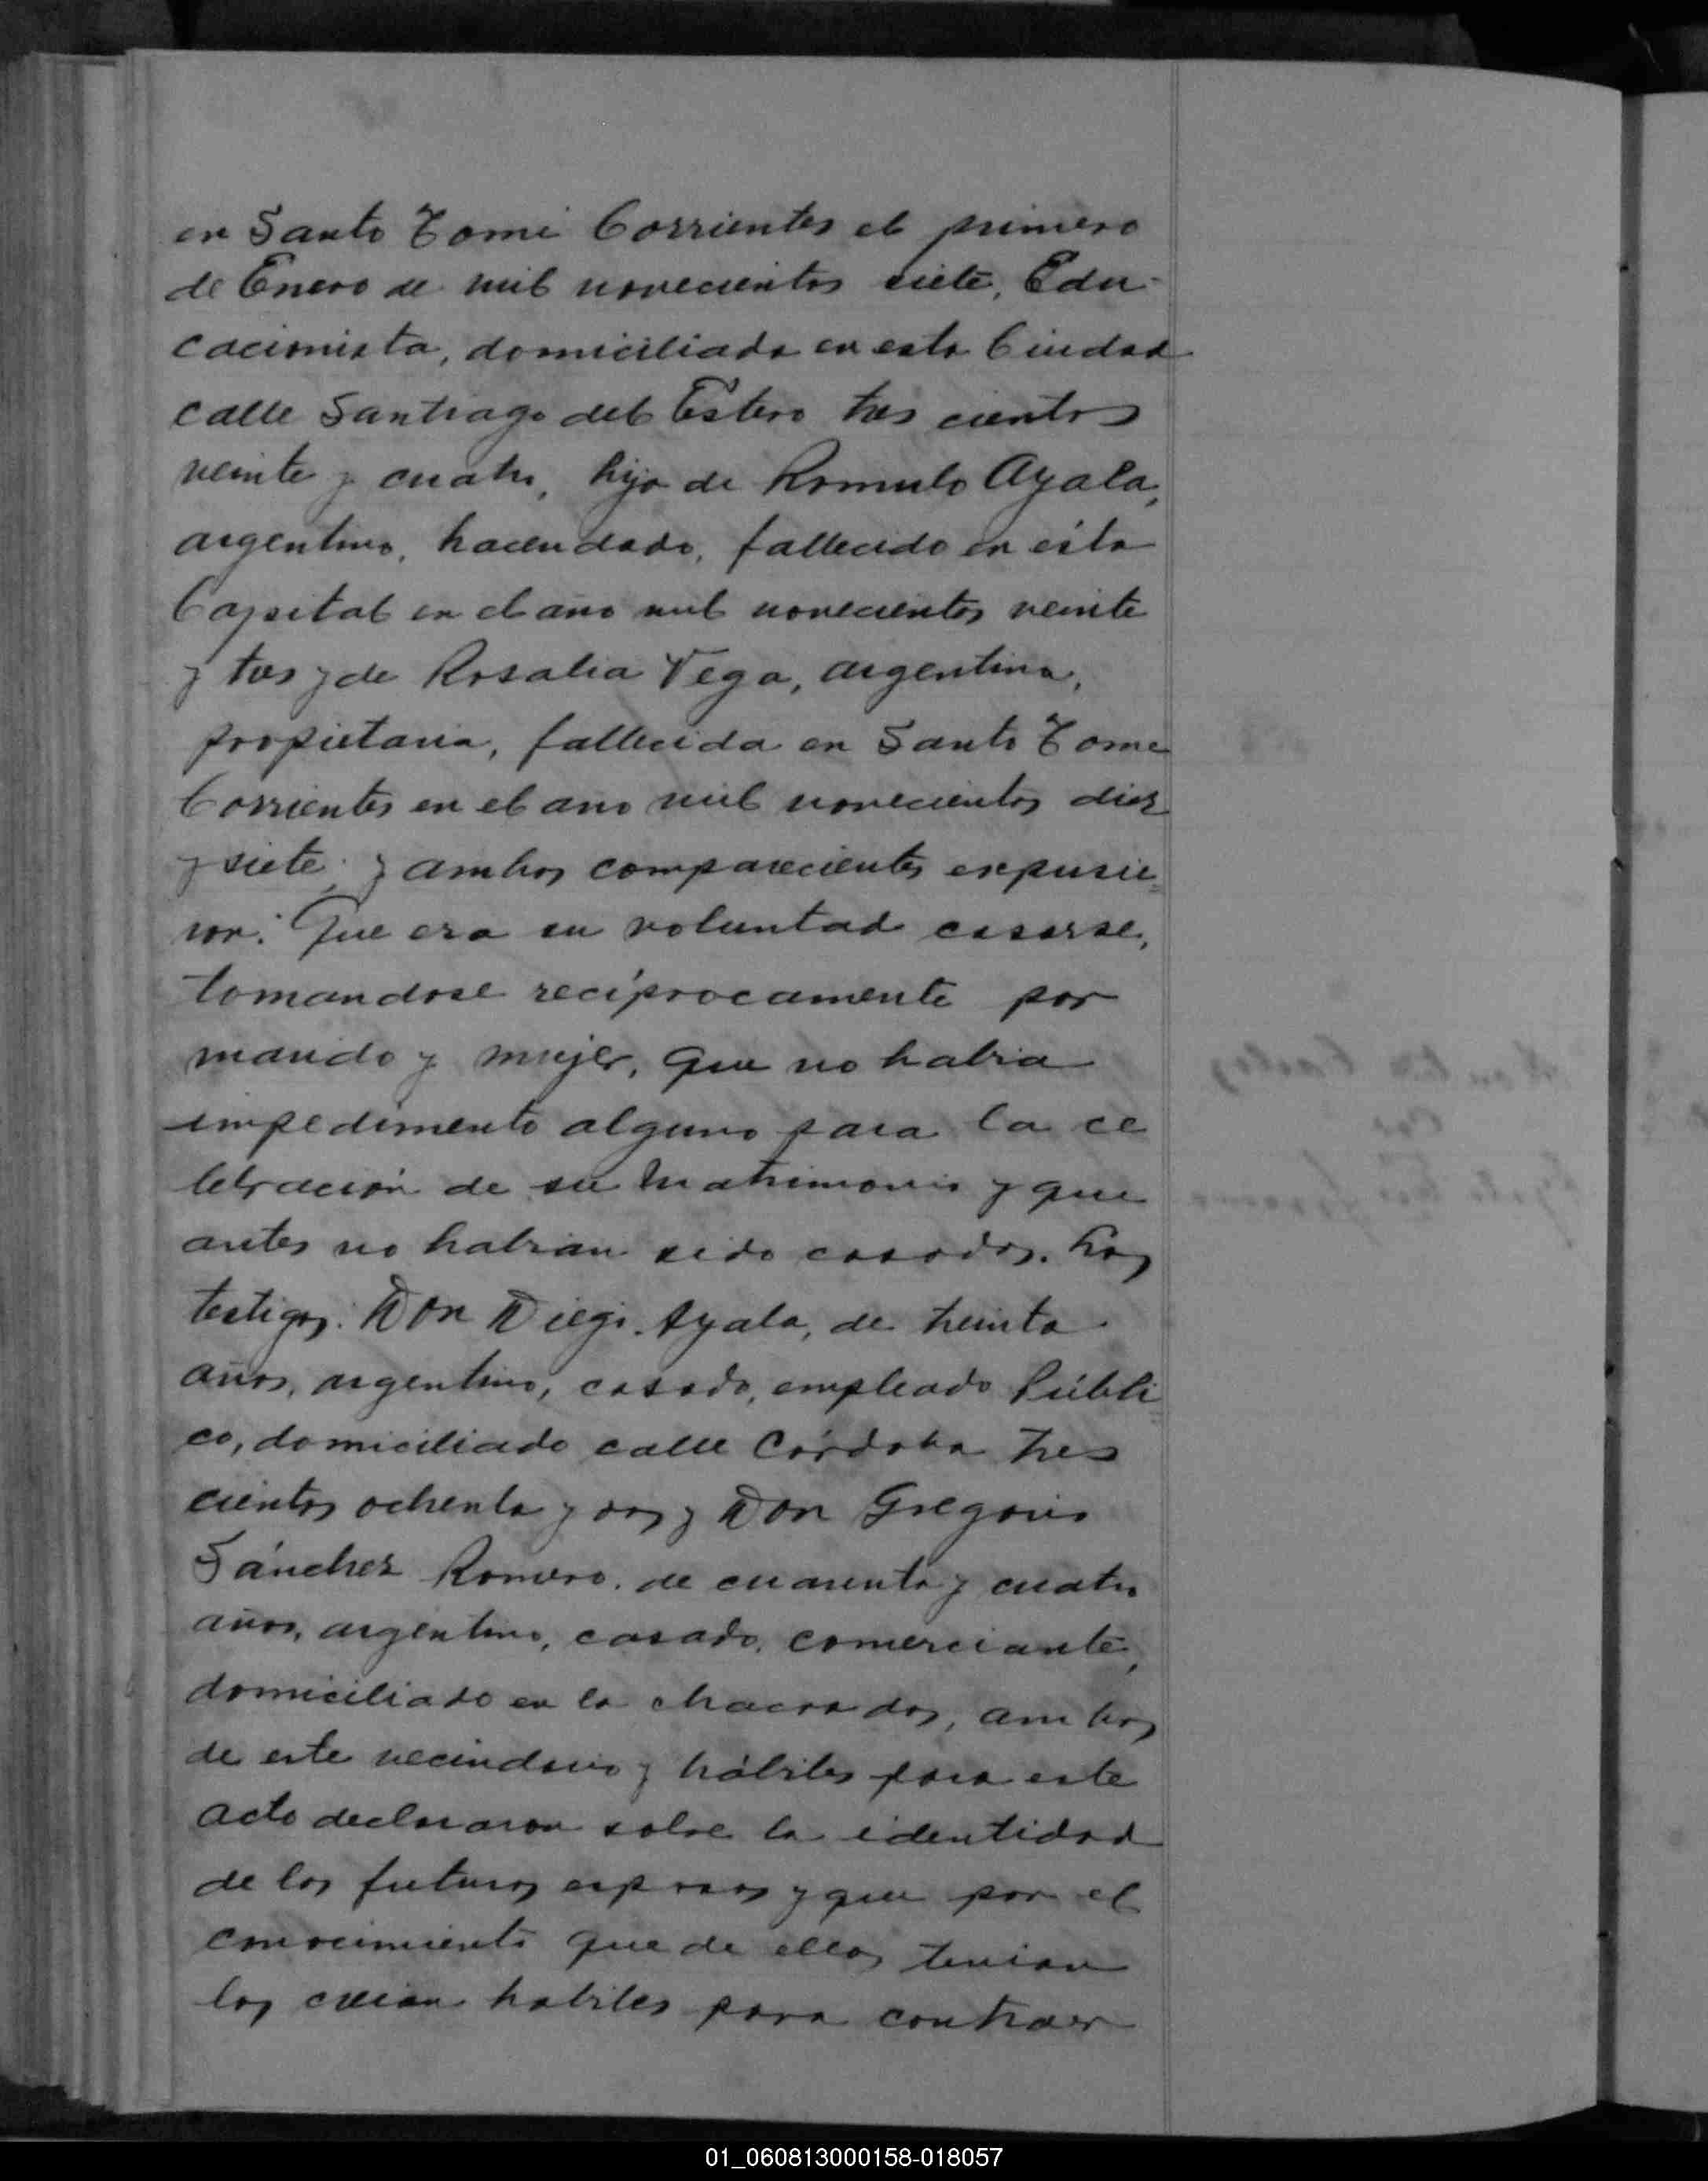 en Santo Tomé Corrientes el primero
de Enero de mil novecientos siete, Edu-
cacionista, domiciliada en esta Ciudad
calle Santiago del Estero tres cientos
veinte y cuatro, hija de Romulo Ayala,
argentino, hacendado, fallecido en ésta
Capital en el año mil novecientos veinte
y tres y de Rosalia Vega, argentina,
propietaria, fallecida en Santo Tome
Corrientes en el ano mil novecientos diez
y siete; y ambos comparecientes expusie=
ron: Que era su voluntad casarse,
tomandose recíprocamente por
marido y mujer, que no habia
impedimento alguno para la ce
lebración de su matrimonio y que
antes no habian sido casados. Los
testigos: Don Diego Ayala, de treinta
años, argentino, casado, empleado Públi=
co, domiciliado calle Córdoba tres
cientos ochenta y dos y Don Gregorio
Sánchez Romero, de cuarenta y cuatro
años, argentino, casado, comerciante,
domiciliado en la chacra dos, ambos
de este vecindario y hábiles para este
acto declararon sobre la identidad
de los futuros esposos y que por el
conocimiento que de ellos tenian
los creian habiles para contraer
01_060813000158-018057